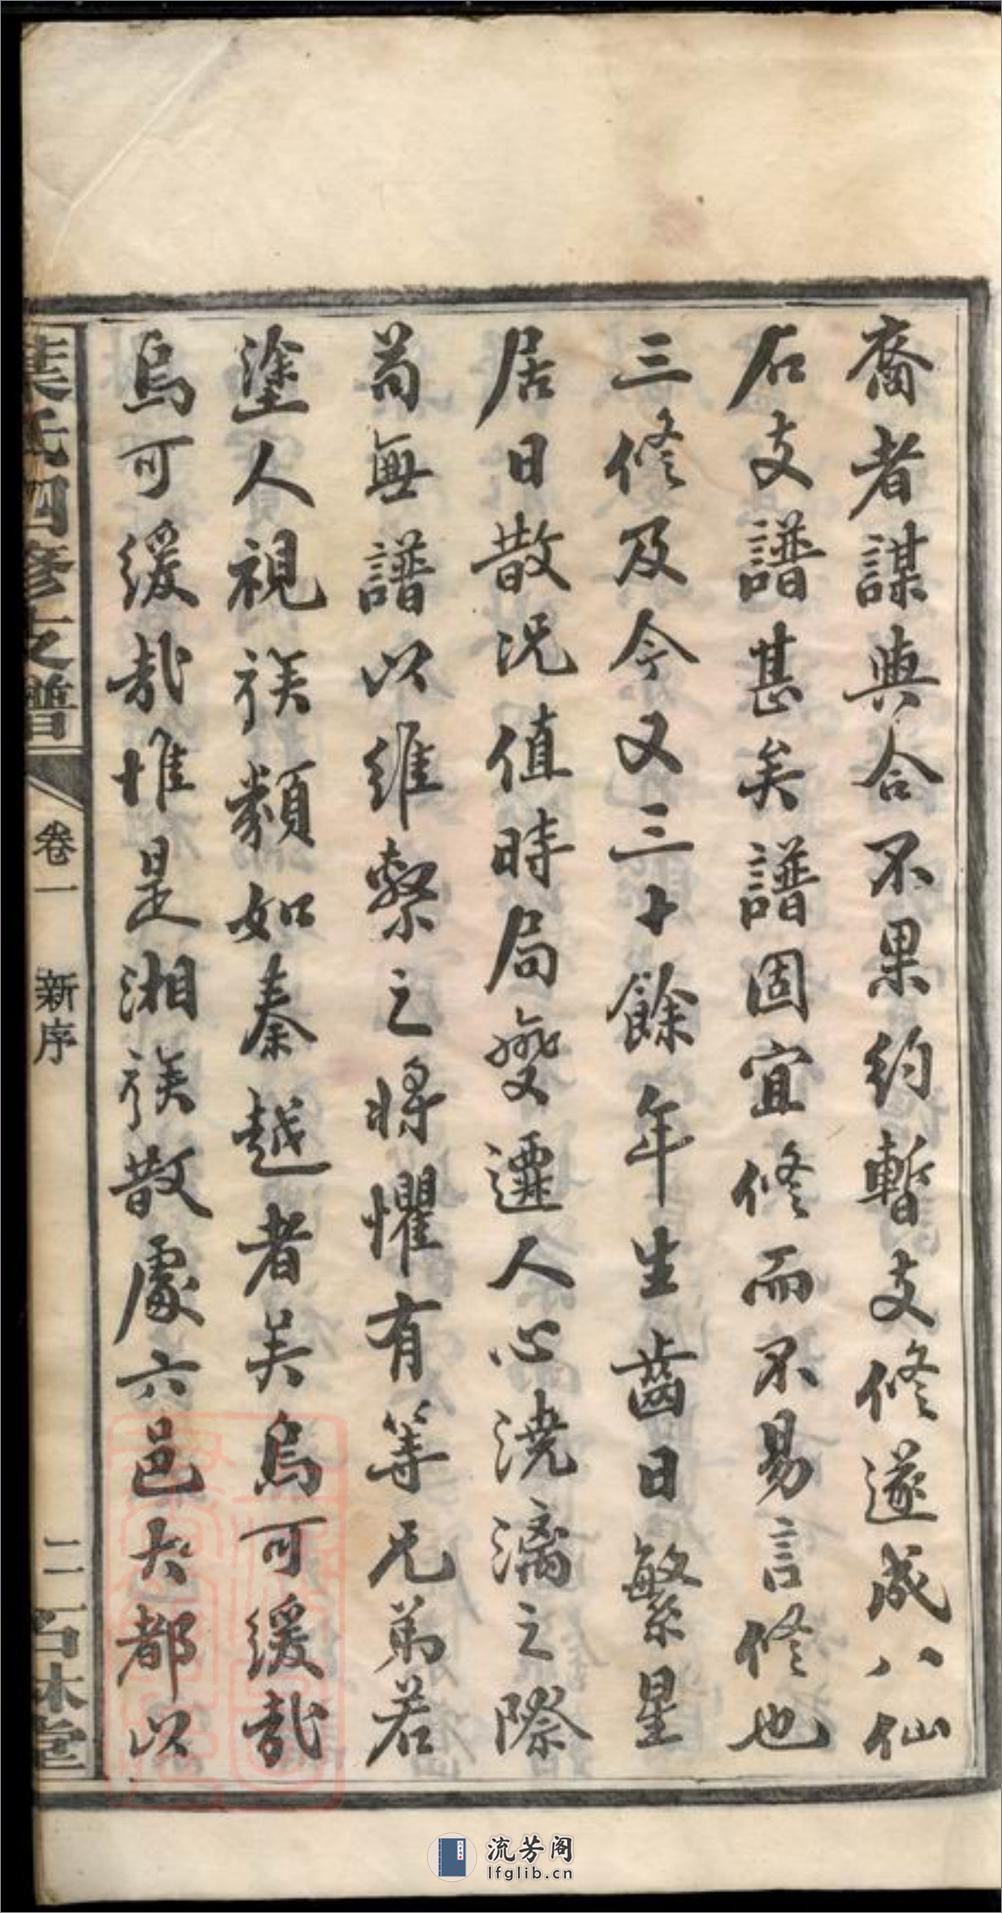 裔者謀與合不果約暫支修遂成八仙
石支譜甚矣譜固宜修而不易言修也
三修及今又三十餘年生齒日繁星
居日散况值時局變遷人心澆漓之際
苟無譜以維繫之將懼有等兄弟若
塗人視族類如秦越者矣烏可緩哉
烏可緩哉惟是湘族散處六邑大都以
葉氏四修支譜
卷一 新序
二 石林堂
流芳阁
lfglib.cn